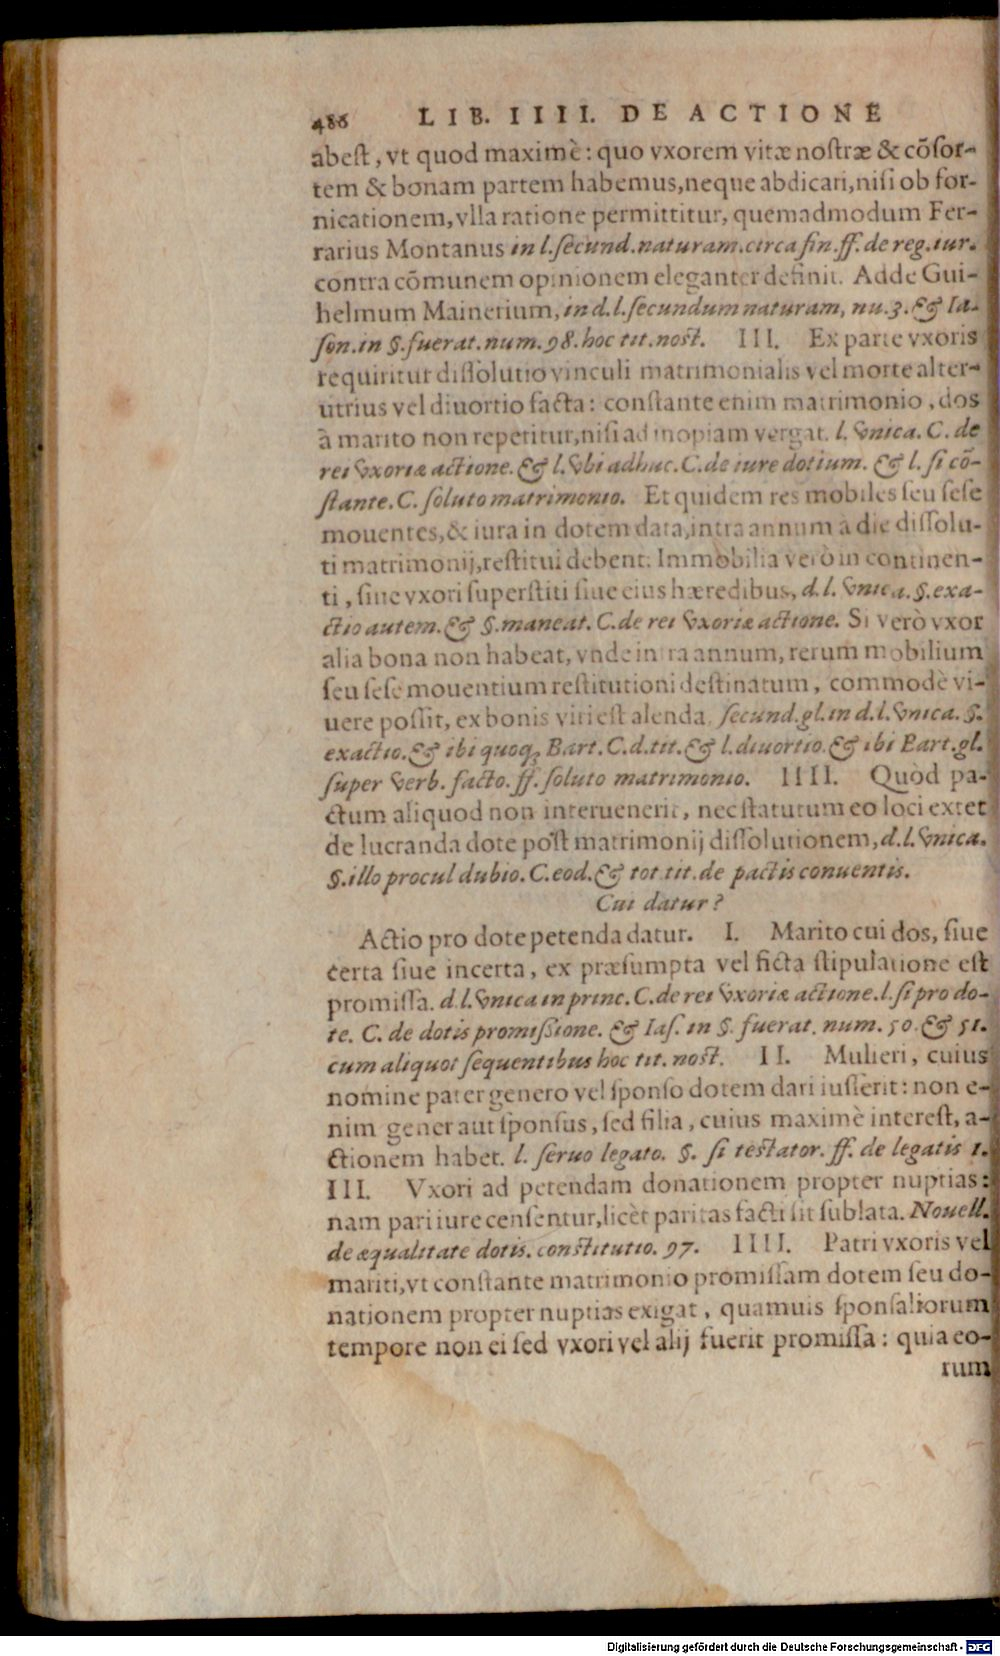 486 LIB. IIII. DE ACTIONE
abest, vt quod maximè: quo vxorem vitæ nostræ & cõsor-
tem & bonam partem habemus, neque abdicari, nisi ob for-
nicationem, vlla ratione permittitur, quemadmodum Fer-
rarius Montanus in l. secund. naturam. circa fin. ff. de reg. iur.
contra cõmunem opinionem eleganter definit. Adde Gui-
helmum Mainerium, in d. l. secundum naturam, nu. 3. & Ia-
son. in §. fuerat. num. 98. hoc tit. nost. III. Ex parte vxoris
requiritur dissolutio vinculi matrimonialis vel morte alter-
utrius vel diuortio facta: constante enim matrimonio, dos
à marito non repetitur, nisi ad inopiam vergat. l. vnica. C. de
rei vxoriæ actione. & l. vbi adhuc. C. de iure dotium. & l. si cõ-
stante. C. soluto matrimonio. Et quidem res mobiles seu sese
mouentes, & iura in dotem data, intra annum à die dissolu-
ti matrimonij, restitui debent: Immobilia verò in continen-
ti, siue vxori superstiti siue eius hæredibus, d. l. vnica. §. exa-
ctio autem. & §. maneat. C. de rei vxoriæ actione. Si verò vxor
alia bona non habeat, vnde intra annum, rerum mobilium
seu sese mouentium restitutioni destinatum, commodè vi-
uere possit, ex bonis viri est alenda, secund. gl. in d. l. vnica. §.
exactio. & ibi quoq; Bart. C. d. tit. & l. diuortio. & ibi Bart. gl.
super verb. facto. ff. soluto matrimonio. IIII. Quòd pa-
ctum aliquod non interuenerit, nec statutum eo loci extet
de lucranda dote post matrimonij dissolutionem, d. l. vnica.
§. illo procul dubio. C. eod. & tot. tit. de pactis conuentis.
Cui datur?
Actio pro dote petenda datur. I. Marito cui dos, siue
certa siue incerta, ex præsumpta vel ficta stipulatione est
promissa. d. l. vnica in princ. C. de rei vxoriæ actione. l. si pro do-
te. C. de dotis promissione. & Ias. in §. fuerat. num. 50. & 51.
cum aliquot sequentibus hoc tit. nost. II. Mulieri, cuius
nomine pater genero vel sponso dotem dari iusserit: non e-
nim gener aut sponsus, sed filia, cuius maximè interest, a-
ctionem habet. l. seruo legato. §. si testator. ff. de legatis 1.
III. Vxori ad petendam donationem propter nuptias:
nam pari iure censentur, licèt paritas facti sit sublata. Nouell.
de æqualitate dotis. constitutio. 97. IIII. Patri vxoris vel
mariti, vt constante matrimonio promissam dotem seu do-
nationem propter nuptias exigat, quamuis sponsaliorum
tempore non ei sed vxori vel alij fuerit promissa: quia eo-
rum
Digitalisierung gefördert durch die Deutsche Forschungsgemeinschaft - DFG